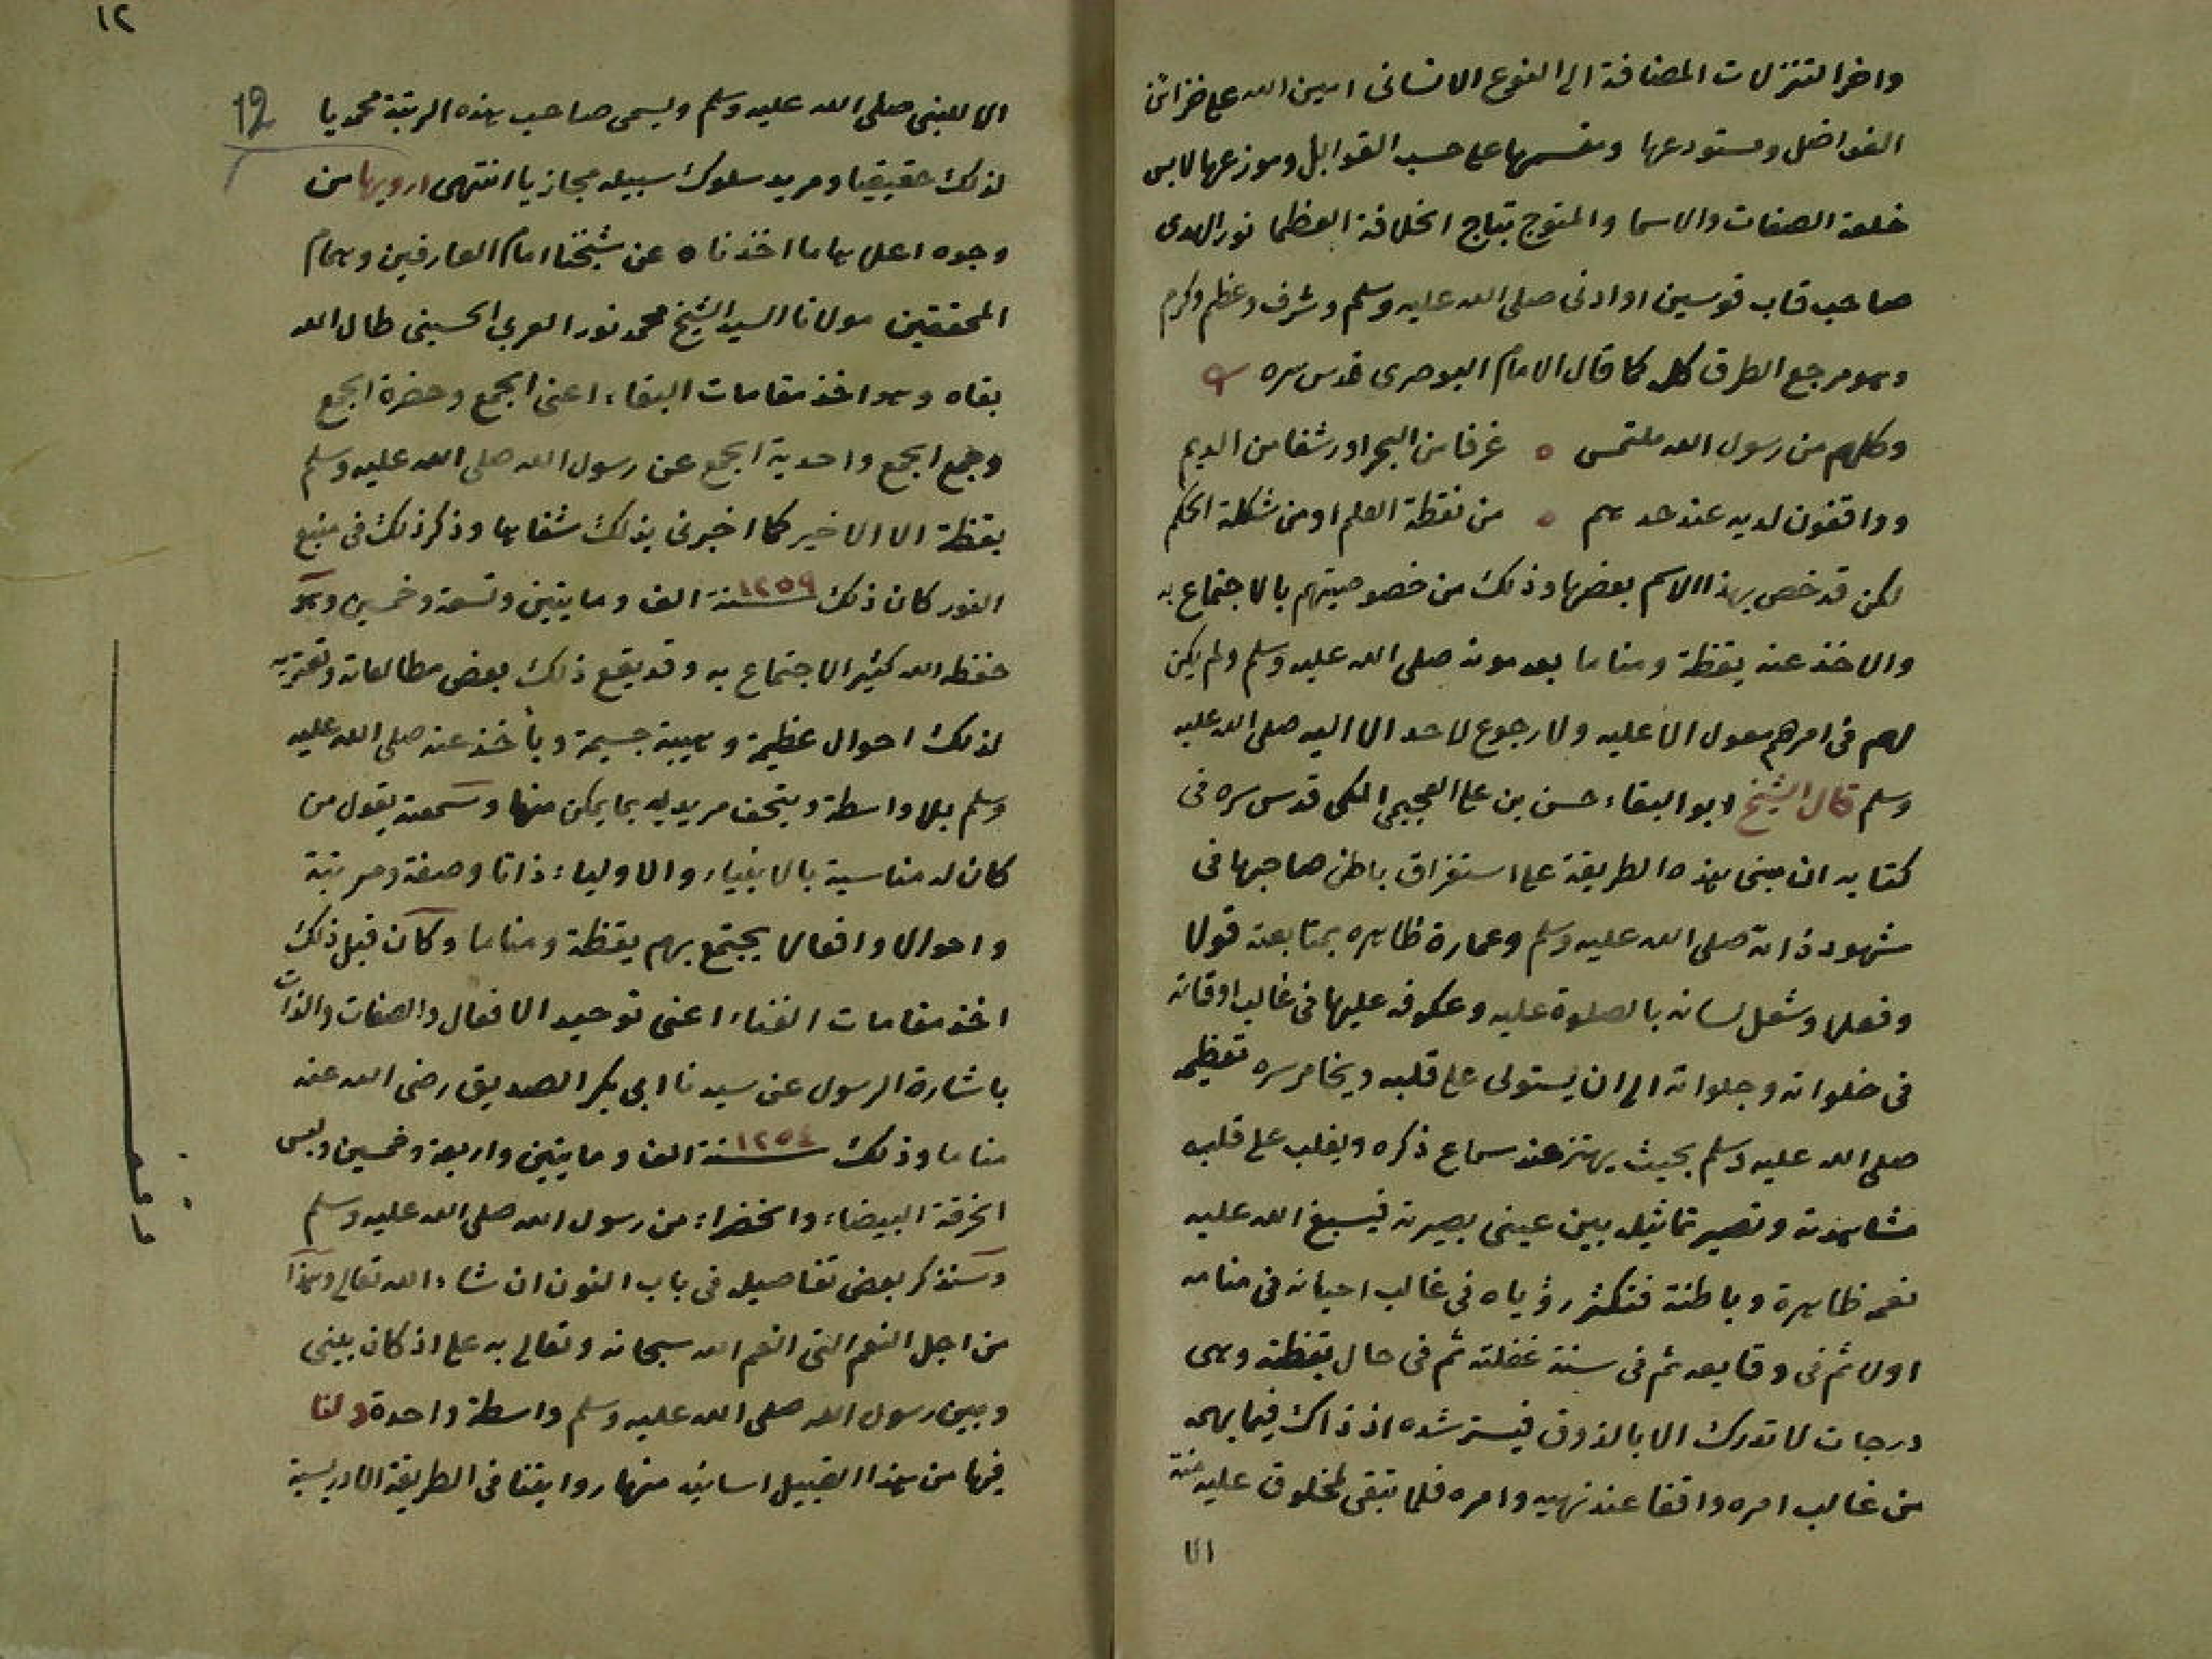 واخر التنزلات المضافة الى النوع الانسانى امين الله على خزائن
الفواضل ومستودعها ومقسمها على حسب القوابل وموزعها لابس
خلعة الصفات والاسما والمتوج بتاج الخلافة العظما نور الهدى
صاحب قاب قوسين او ادنى صلى الله عليه وسلم وشرف وعظم وكرم
وهو مرجع الطرق كل كما قال الامام البوصرى قدس سره
وكلهم من رسول الله ملتمس ه غرفا من البحر او رشفا من الديم
وواقفون لديه عند حدهم ه من نقطة العلم او من شكلة الحكم
لكن قد خص بهذا الاسم بعضها وذلك من خصوصيتهم بالاجتماع به
والاخذ عنه يقظة ومناما بعد موته صلى الله عليه وسلم ولم يكن
لهم فى امرهم معول الا عليه ولا رجوع لاحد الا اليه صلى الله عليه
وسلم قال الشيخ ابو البقاء حسن بن على العجيمى المكى قدس سره فى
كتابه ان مبنى هذه الطريقة على استغراق باطن صاحبها فى
شهود ذاته صلى الله عليه وسلم وعمارة ظاهره بمتابعته قولا
وفعلا وشغل لسانه بالصلوة عليه وعكوفه عليها فى غالب اوقاته
فى خلواته وجلواته الى ان يستولى على قلبه ويخامر سره تعظيمه
صلى الله عليه وسلم بحيث يهتز عند سماع ذكره ويغلب على قلبه
مشاهدته وتصير تماثيله بين عينى بصيرته فيسبغ الله عليه
نعمه ظاهرة وباطنة فتكثر رؤياه فى غالب احيانه فى منامه
اولا ثم فى وقايعه ثم فى سنة غفلته ثم فى حال يقظته وهى
درجات لا تدرك الا بالذوق فيسترشده اذ ذاك فيما يهمه
من غالب امره واقفا عند نهيه وامره فلما تبقى لمخلوق عليه منة
الا
١٢
12
الا للنبى صلى الله عليه وسلم ويسمى صاحب هذه الرتبة محمديا
لذلك حقيقيا ومريد سلوك سبيله مجازيا انتهى ارويها من
وجوه اعلاها ما اخذناه عن شيخنا امام العارفين وهمام
المحققين مولانا السيد الشيخ محمد نور العربى الحسينى طال الله
بقاه وهو اخذ مقامات البقاء اعنى الجمع وحضرة الجمع
وجمع الجمع واحدية الجمع عن رسول الله صلى الله عليه وسلم
يقظة الا الاخير كما اخبرنى بذلك شفاها وذكر ذلك فى منبع
النور كان ذلك ١٢٥٩ سنة الف ومايتين وتسعة وخمسين وهو
حفظه الله كثير الاجتماع به وقد يقع ذلك بعض مطالعاته وتعتريه
لذلك احوال عظيمة وهيبة جسيمة ويأخذ عنه صلى الله عليه
وسلم بلا واسطة ويتحف مريديه بما يمكن منها وسمعته يقول من
كان له مناسبة بالانبياء والاولياء ذاتا وصفة ومرتبة
واحوالا وافعالا يجتمع بهم يقظة ومناما وكان قبل ذلك
اخذ مقامات الفناء اعنى توحيد الافعال والصفات والذات
باشارة الرسول عن سيدنا ابى بكر الصديق رضى الله عنه
مناما وذلك ١٢٥٤ سنة الف ومايتين واربعة وخمسين ولبس
الخرقة البيضاء والخضراء من رسول الله صلى الله عليه وسلم
وسنذكر بعض تفاصيله فى باب النون ان شاء الله تعالى وهذا
من اجل النعم التى انعم الله سبحانه وتعالى به على اذ كان بينى
وبين رسول الله صلى الله عليه وسلم واسطة واحدة ولنا
فيها من هذا القبيل اسانيد منها روايتنا فى الطريقة الادريسية